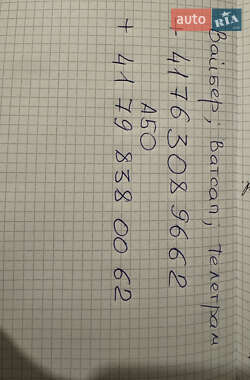 auto RIA
Вайбер; Ватсап; телеграм
+ 4176 308 9662
АБО
+ 41 79 838 00 62